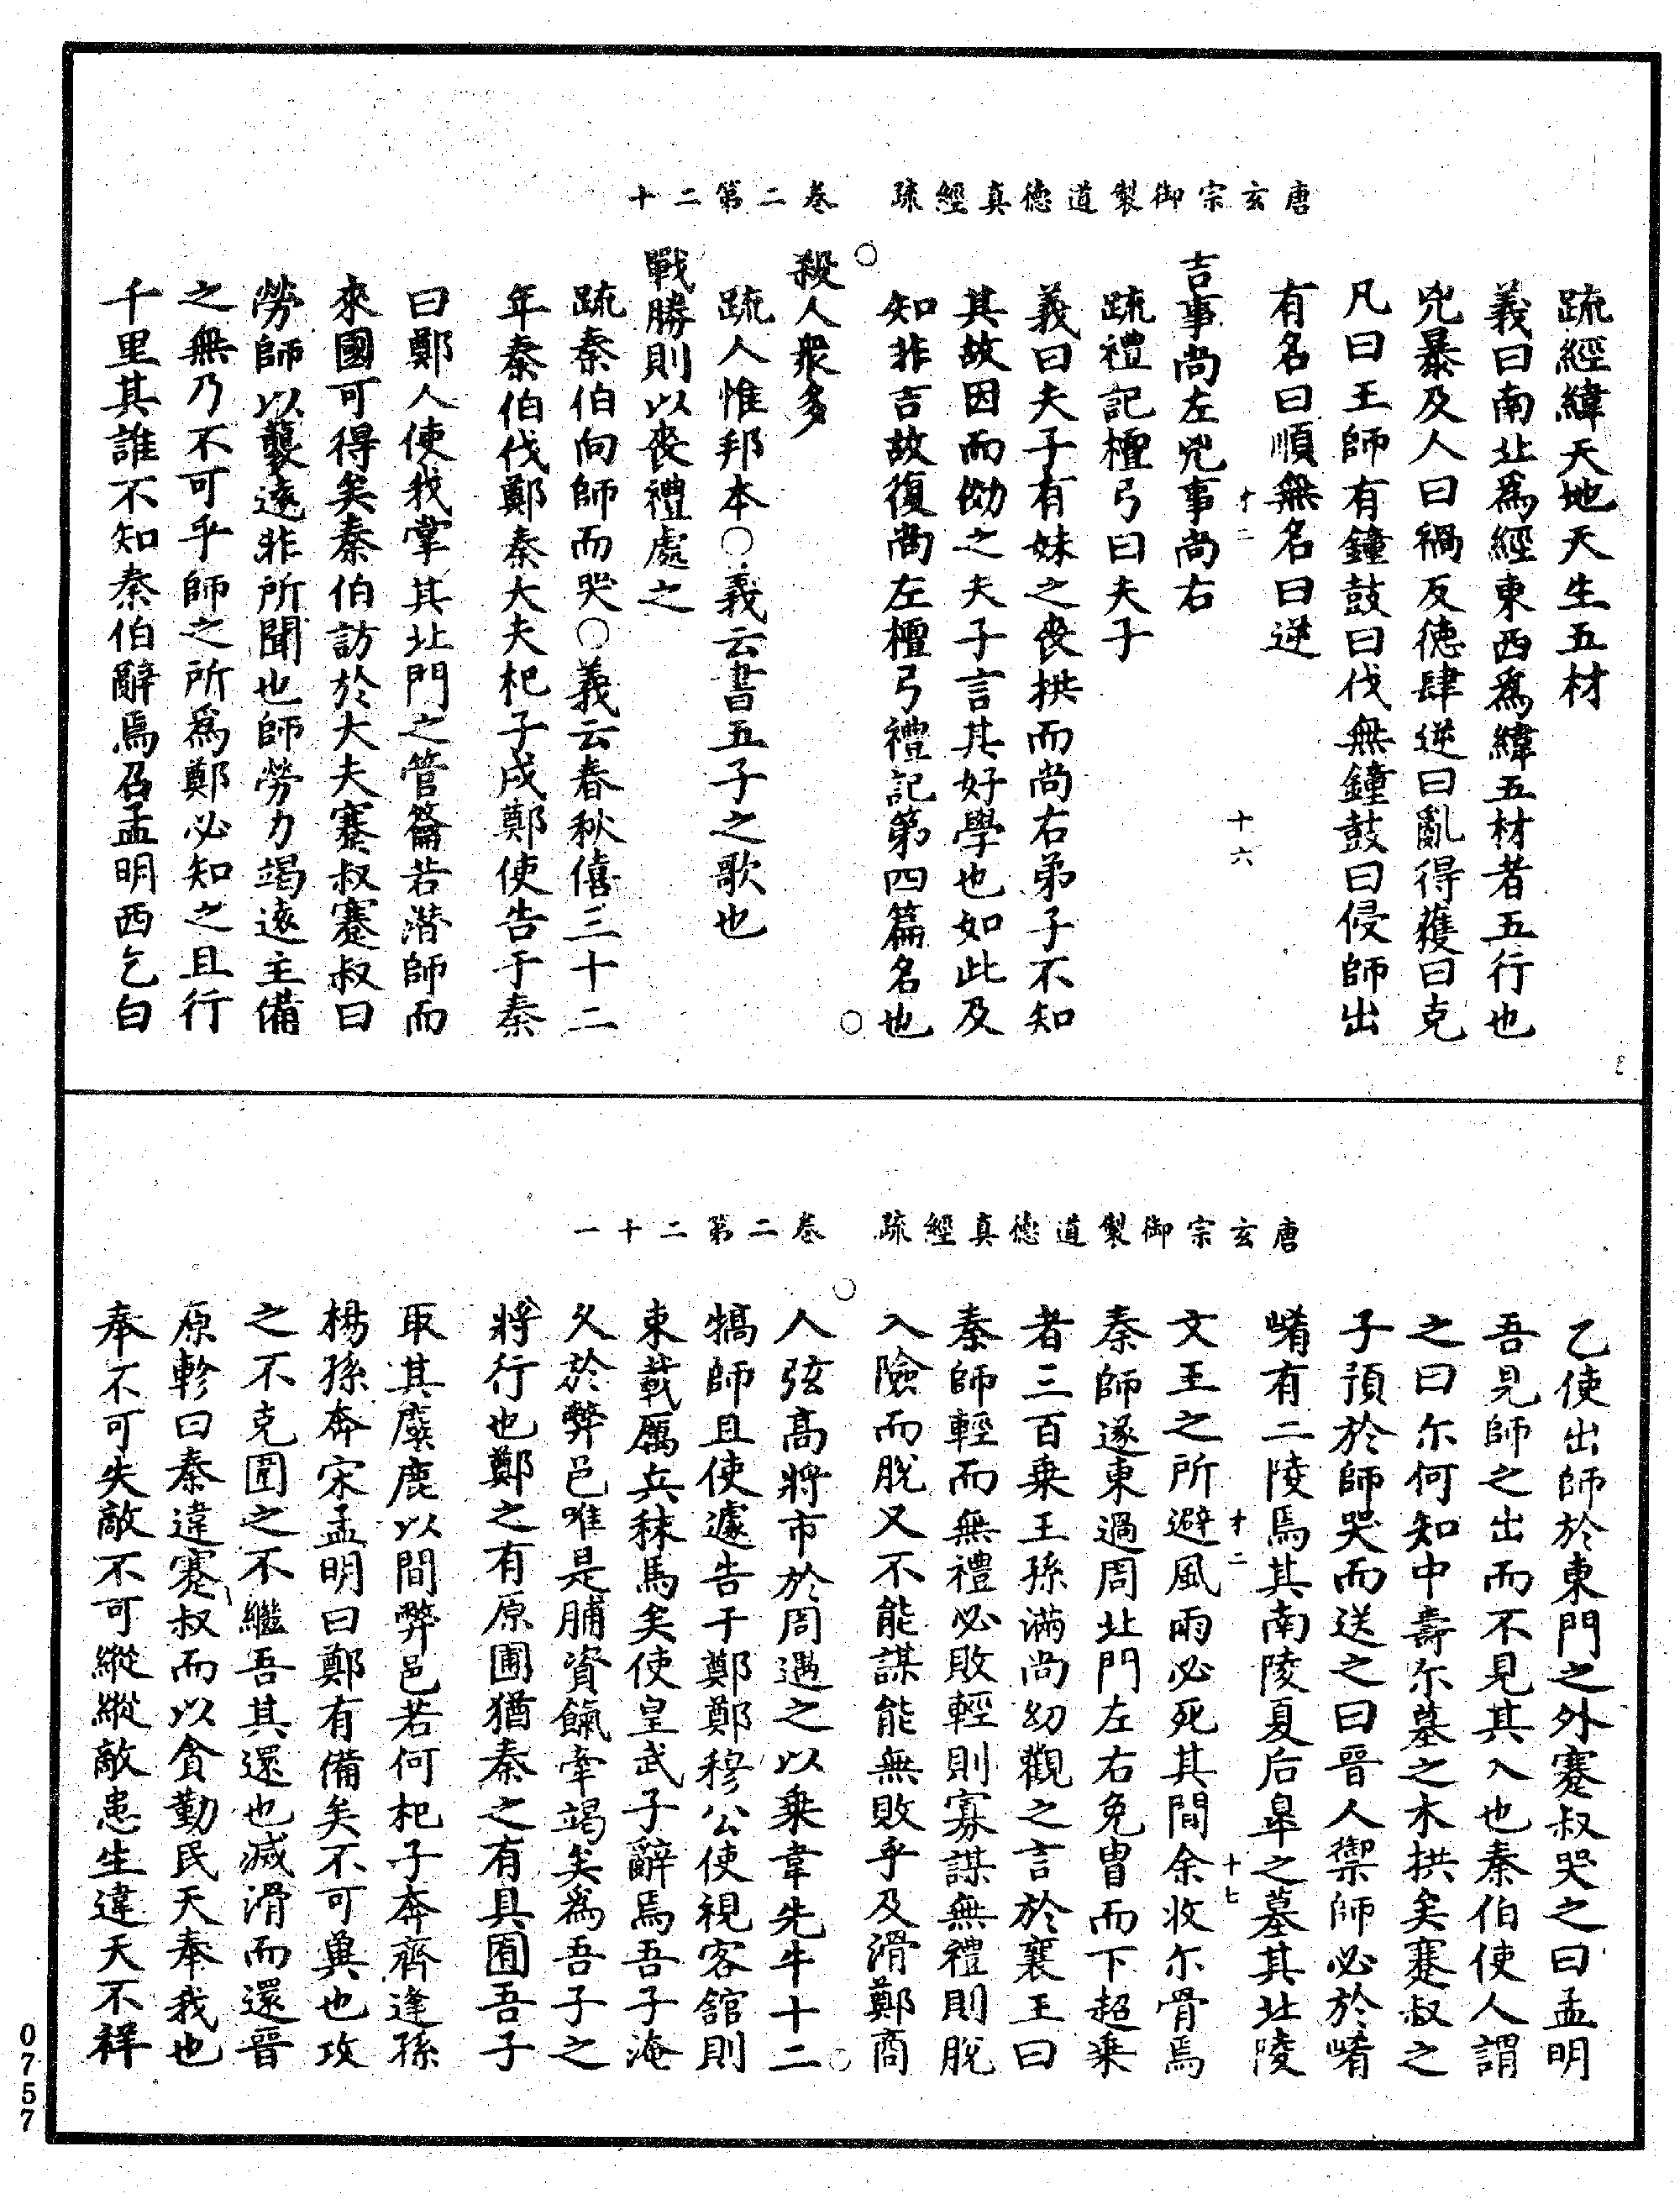 唐玄宗御製道德真經疏　卷二第二十
疏經緯天地天生五材
義曰南北爲經東西爲緯五材者五行也
兇暴及人曰禍反德肆逆曰亂得獲曰克
凡曰王師有鐘鼓曰伐無鐘鼓曰侵師出
有名曰順無名曰逆
才二　十六
吉事尚左兇事尚右
疏禮記檀弓曰夫子
義曰夫子有妹之喪拱而尚右弟子不知
其故因而俲之夫子言其好學也如此及
知非吉故復尚左檀弓禮記第四篇名也
殺人衆多
疏人惟邦本○義云書五子之歌也
戰勝則以喪禮處之
疏秦伯向師而哭○義云春秋僖三十二
年秦伯伐鄭秦大夫杞子戍鄭使告于秦
曰鄭人使我掌其北門之管籥若潛師而
來國可得矣秦伯訪於大夫蹇叔蹇叔曰
勞師以襲遠非所聞也師勞力竭遠主備
之無乃不可乎師之所爲鄭必知之且行
千里其誰不知秦伯辭焉召孟明西乞白
唐玄宗御製道德真經疏　卷二第二十一
乙使出師於東門之外蹇叔哭之曰孟明
吾見師之出而不見其入也秦伯使人謂
之曰尒何知中壽尒墓之木拱矣蹇叔之
子預於師哭而送之曰晉人禦師必於崤
崤有二陵焉其南陵夏后臯之墓其北陵
才二　十七
文王之所避風雨必死其間余收尒骨焉
秦師遂東過周北門左右免冑而下超乘
者三百乘王孫滿尚幼觀之言於襄王曰
秦師輕而無禮必敗輕則寡謀無禮則脫
入險而脫又不能謀能無敗乎及滑鄭商
人弦高將市於周遇之以乘韋先牛十二
犒師且使遽告于鄭鄭穆公使視客舘則
束載厲兵秣馬矣使皇武子辭焉吾子淹
久於弊邑唯是脯資餼牽竭矣爲吾子之
將行也鄭之有原圃猶秦之有具囿吾子
取其麋鹿以間弊邑若何杞子奔齊逢孫
楊孫奔宋孟明曰鄭有備矣不可兾也攻
之不克圍之不繼吾其還也滅滑而還晉
原軫曰秦違蹇叔而以貪勤民天奉我也
奉不可失敵不可縱縱敵患生違天不祥
0757